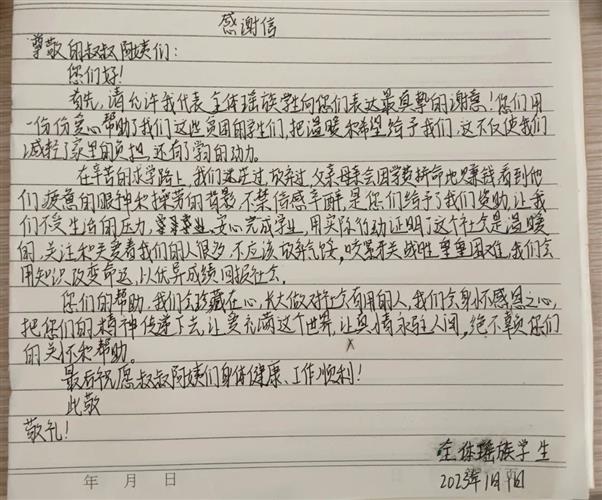 感谢信
尊敬的叔叔阿姨们:
您们好!
首先,请允许我代表全体瑶族学生向你们表达最真挚的谢意!你们用
一份份爱心帮助了我们这些贫困的学生们,把温暖和希望给予我们,这不仅使我们
减轻了家里的负担,还有了学习的动力。
在辛苦的求学路上,我们迷茫过,放弃过,父亲母亲会因学费拼命地赚钱看到他
们疲惫的眼神和操劳的背影,不禁倍感辛酸,是你们给予了我们资助,让我
们不受生活的压力,安心完成学业,用实际行动证明了这个社会是温暖
的,关注和关爱着我们的人很多,不应该放弃气馁,咬紧牙关战胜重重困难,我们会
用知识改变命运,以优异成绩回报社会。
您们的帮助,我们会珍藏在心,长大做对社会有用的人,我们会身怀感恩之心,
把您们的精神传递下去,让爱礼满这个世界,让真情永驻人间,绝不辜负你们
的关怀和帮助。
最后祝愿叔叔阿姨们身体健康、工作顺利!
此致
敬礼!
全体瑶族学生
2023年1月9日
年 月 日